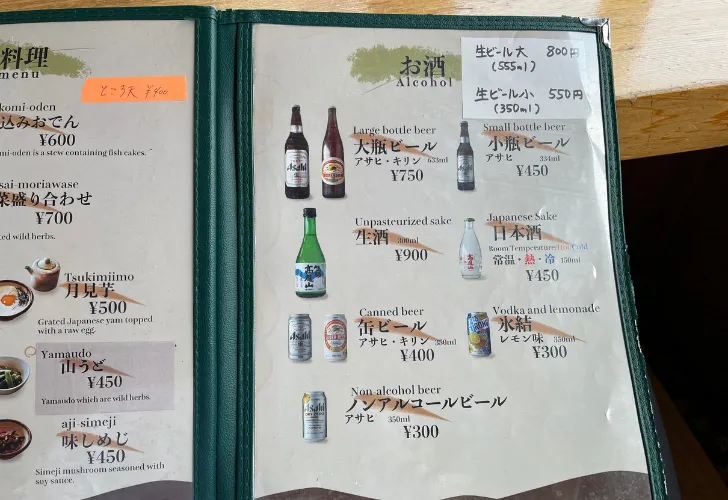 料理
menu
ところ天 ¥400
komi-oden
込みおでん
¥600
omi-oden is a stew containing fish cakes.
sai-moriawase
菜盛り合わせ
¥700
ted wild herbs.
Tsukimiimo
月見芋
¥500
Grated Japanese yam topped
with a raw egg.
Yamaudo
山うど
¥450
Yamaudo which are wild herbs.
aji-simeji
味しめじ
¥450
Simeji mushroom seasoned with
soy sauce.
お酒
Alcohol
生ビール大 800円
(555ml)
生ビール小 550円
(350ml)
Large bottle beer
大瓶ビール
アサヒ・キリン 633ml
¥750
Small bottle beer
小瓶ビール
アサヒ 334ml
¥450
Unpasteurized sake
生酒 300ml
¥900
Japanese Sake
日本酒
Room Temperature/Hot/Cold
常温・熱・冷 150ml
¥450
Canned beer
缶ビール
アサヒ・キリン 350ml
¥400
Vodka and lemonade
氷結
レモン味 350ml
¥300
Non-alcohol beer
ノンアルコールビール
アサヒ 350ml
¥300
Asahi
高尾山
Asahi
Asahi